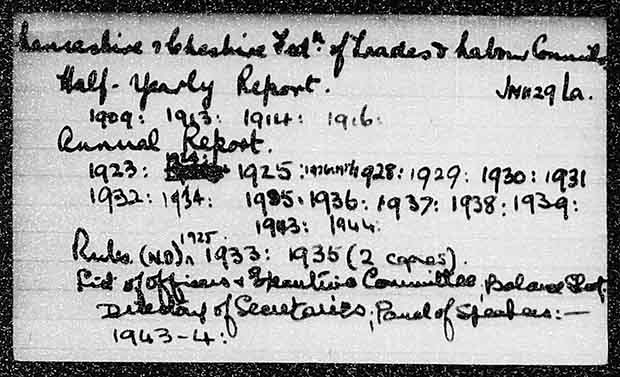 Lancashire & Cheshire Fedn of Trades & Labour Councils
Half-Yearly Report. JN1129 La.
1909: 1913: 1914: 1916:
Annual Report.
1923: 1924: 1925: 1928: 1929: 1930: 1931
1932: 1934: 1935: 1936: 1937: 1938: 1939:
1943: 1944:
Rules (ND), 1925. 1933: 1935 (2 copies).
List of Officers & Executive Committee, Balance Sheet,
Directory of Secretaries; Panel of Speakers:—
1943-4: